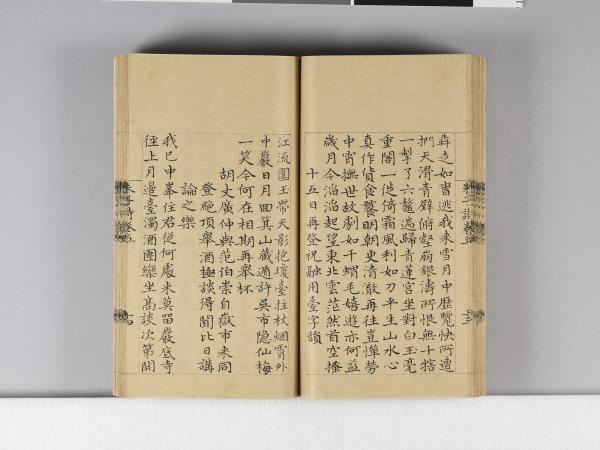 犇走如曹逃我来雪月中歷覽快所遭
捫天滑青壁俯壑崩銀濤所恨無十犗
一掣了六鼇遄歸青蓮宮坐對白玉毫
重閣一徙倚霜風利如刀平生山水心
真作貨食饕明朝更清澈再往豈憚勞
中宵撫世故劇如千蝟毛嬉遊亦何益
歲月今滔滔起望東北雲茫然首空搔
十五日再登祝融用臺字韻
江流圍玉帶天影抱瓊臺拄杖烟霄外
中巖日月回箕山藏遁許吳市隱仙梅
一笑今何在相期再舉杯
胡丈廣仲與范伯崇自嶽市来同
登絕頂舉酒極談得聞比日講
論之樂
我已中峯住君從何處来莫留巖底寺
徑上月邊臺濁酒團欒坐高談次第開